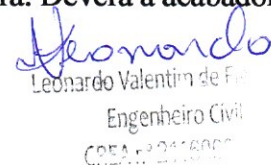 ra. Deverá a acabador
Leonardo
Leonardo Valentim de
Engenheiro Civil
CREA nº